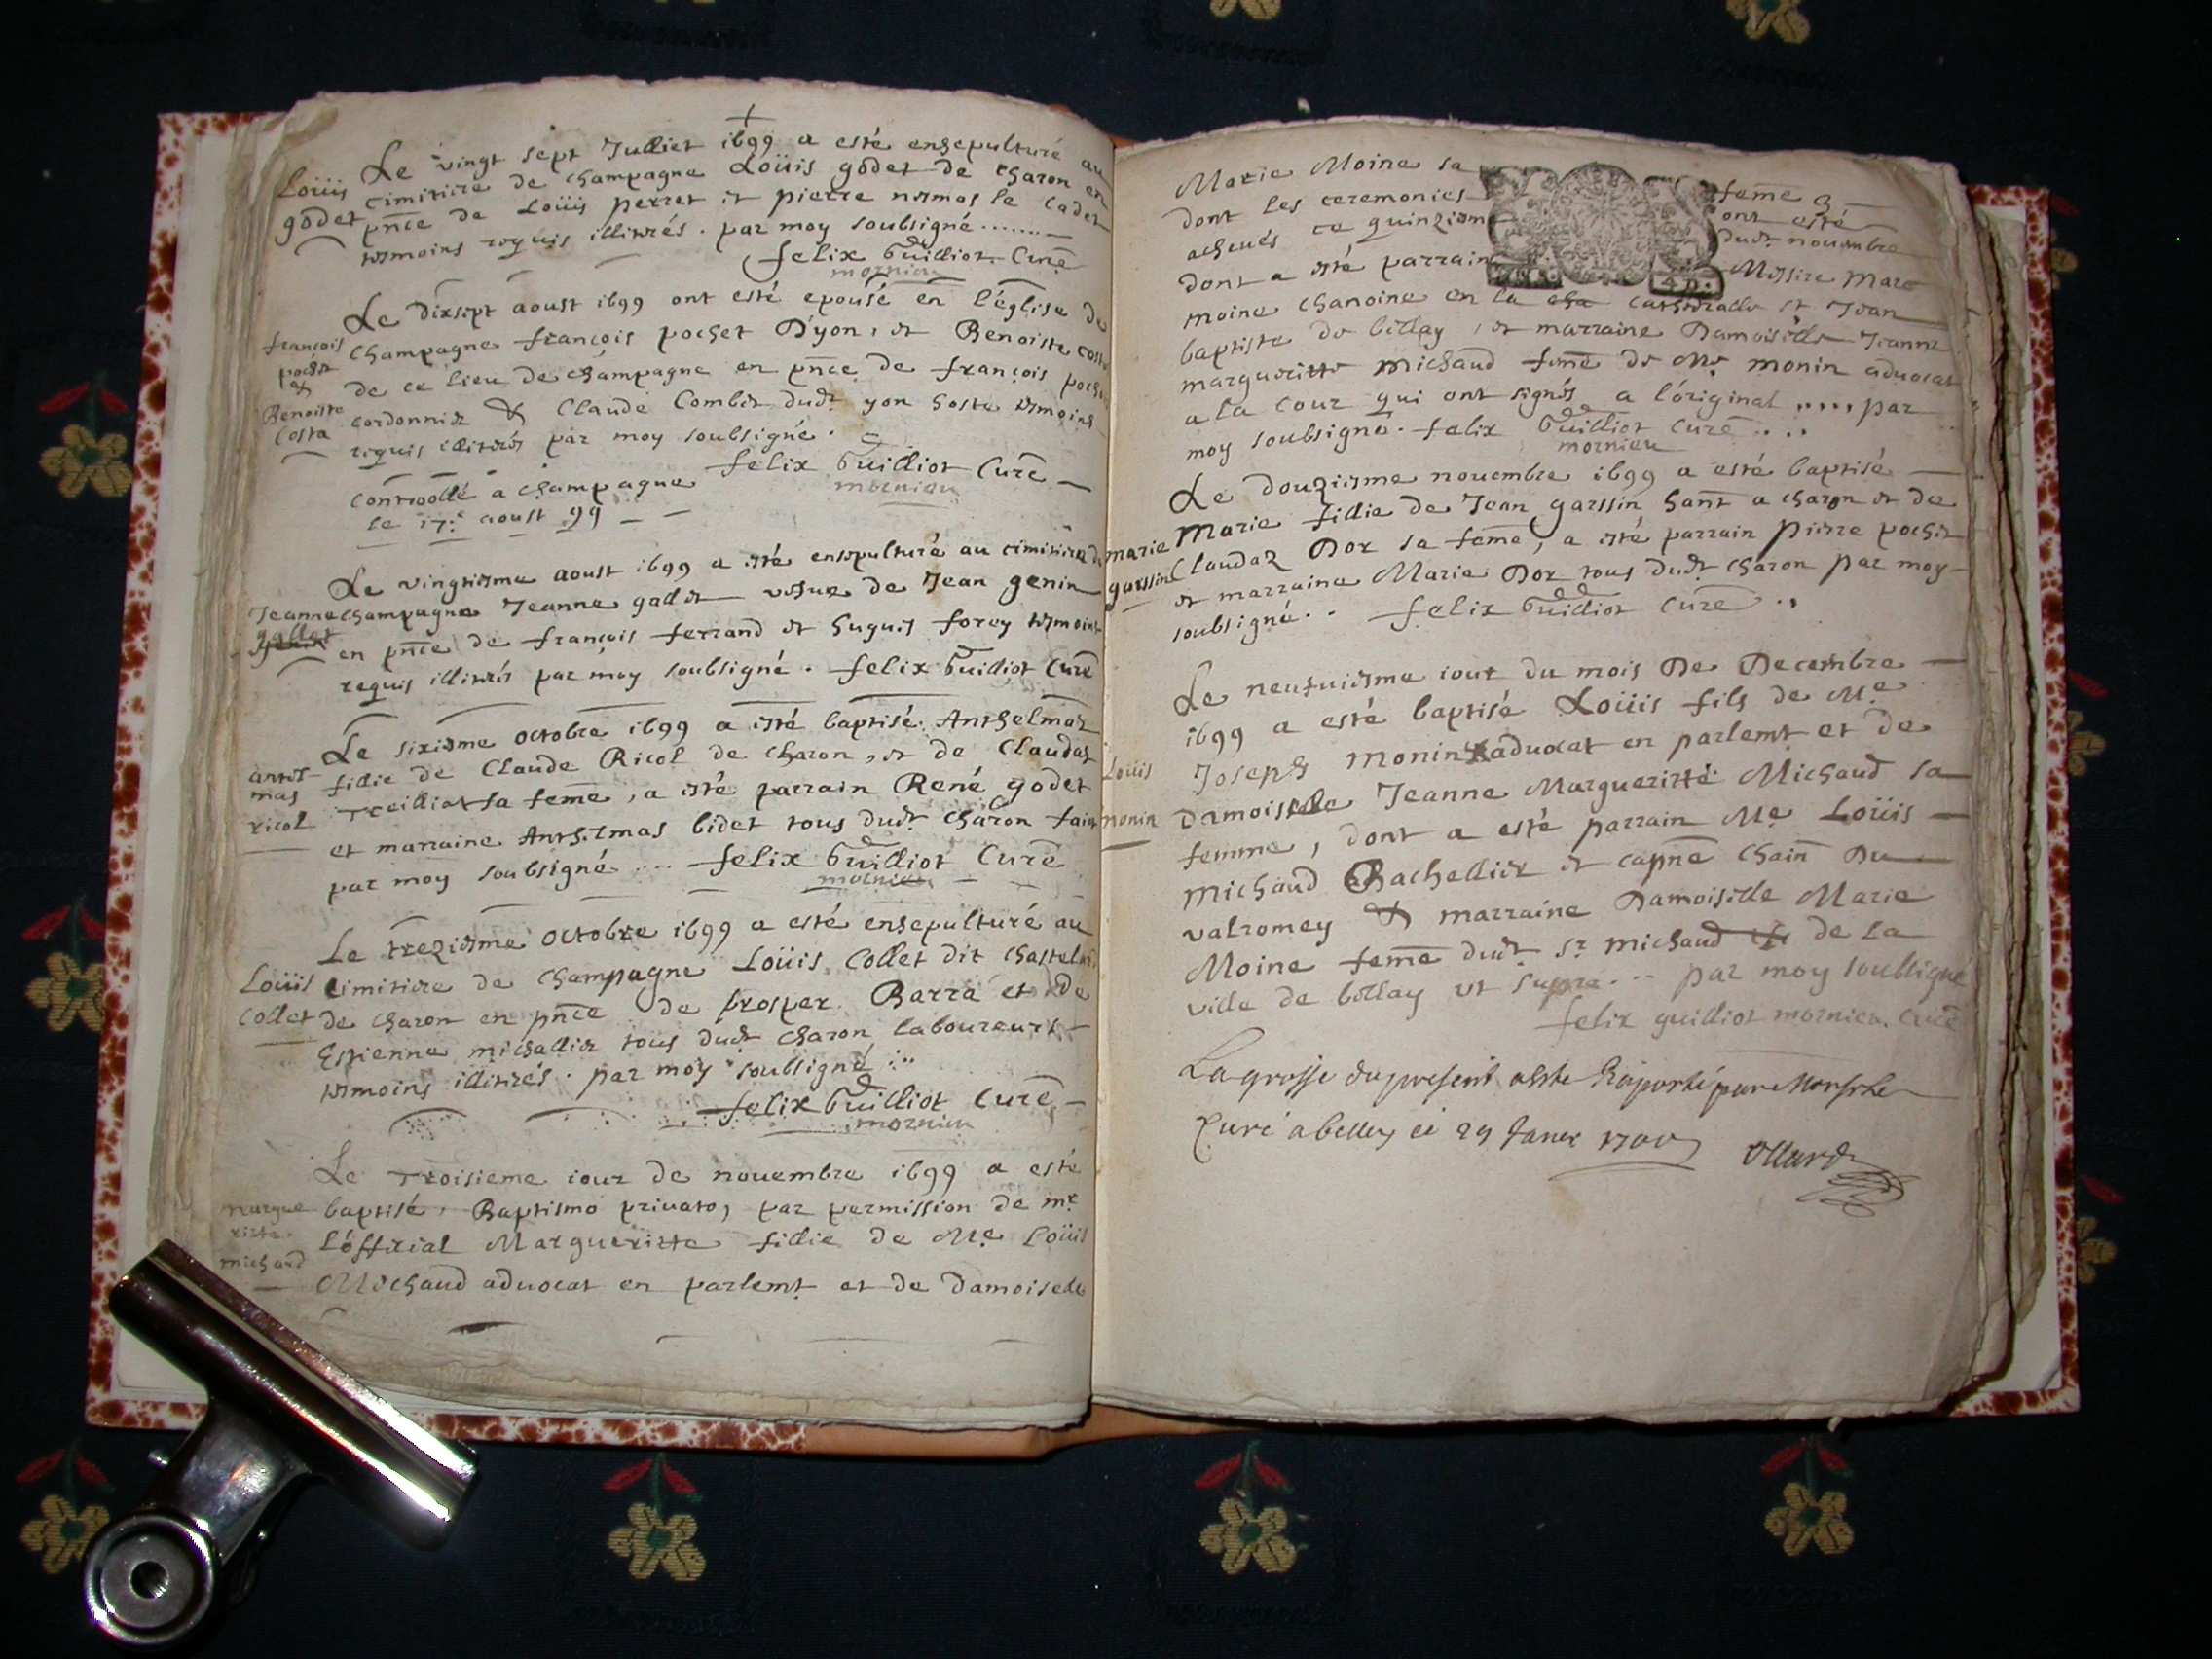 Le vingt sept Julliet 1699 a esté ensepulturé au
Loüis
godet
cimitiere de champagne Loüis godet de charon en
pn̄ce de Loüis perret et pierre nemos le cadet
temoins requis illiterés . par moy soubsigné ........
felix Guilliot Curé
mornieu
Le dixsept aoust 1699 ont esté epousé en l'église de
françois
pochet
&
Benoiste
Costa
champagne françois pochet D'yon, et Benoiste costa
de ce lieu de champagne en pn̄ce de françois pochet
cordonnier & Claude Combet dudt yon hoste temoins
requis illiterés par moy soubsigné .
felix Guilliot Curé
mornieu
Controollé a champagne
le 17e aoust 99
Le vingtiesme aoust 1699 a esté ensepulturé au cimitiere de
Jeanne
gallet
champagne Jeanne gallet vefue de Jean genin
en pn̄ce de françois ferrand et hugues forey temoins
requis illiterés par moy soubsigné . felix Guilliot Curé
Le sixiesme octobre 1699 a esté baptisé Anthelmaz
antel
maz
ricol
fillie de Claude Ricol de charon, et de Claudaz
Treilliat sa feme, a esté parrain René godet
et marraine Anthelmas bidet tous dudt charon fait
par moy soubsigné .... felix Guilliot Curé
mornieu
Le treziesme octobre 1699 a esté ensepulturé au
Loüis
Collet
cimitiere de champagne Loüis Collet dit
de charon en pn̄ce de prosper Barra et de
Estienne michallier tous dudt charon laboureurs
temoins illiterés . par moy soubsigné ...
felix Guilliot Curé
mornieu
Le Troisieme iour de nouembre 1699 a esté
margue
ritte
michaud
baptisé, Baptismo priuato, par permission de mr
L'official Margueritte fillie de Me Loüis
Michaud aduocat en parlemt et de Damoiselle
Marie Moine sa feme &
dont les ceremonies ont esté
acheués ce quinziesme dudt nouembre
dont a esté parrain Messire Marc
moine chanoine en la cha cathedralle st Jean
baptiste de bellay, et marraine Damoiselle Jeanne
margueritte michaud feme de Me monin aduocat
a la cour qui ont signés a l'original .... par
moy soubsigné . felix Guilliot Curé ...
mornieu
Le douziesme nouembre 1699 a esté baptisé
marie
garssin
Marie fillie de Jean garssin hant a charon et de
Claudaz Dor sa feme, a esté parrain pierre pochet
et marraine Marie Dor tous dudt charon par moy
soubsigné .. felix Guilliot Curé ..
Le neufuiesme iour du mois De Decembre
1699 a esté baptisé Loüis fils de Me
Loüis
monin
Joseph monin aduocat en parlemt et de
Damoiselle Jeanne Margueritte Michaud sa
femme, dont a esté parrain Me Loüis
michaud Bachellier et capne chain Du
valromey & marraine Damoiselle Marie
Moine feme dudt sr michaud de la
ville de bellay ut supra ... par moy soubsigné
felix guilliot mornieu Curé
La grosse du present a esté Raporté par
Curé a belley ce 29 Janer 1700